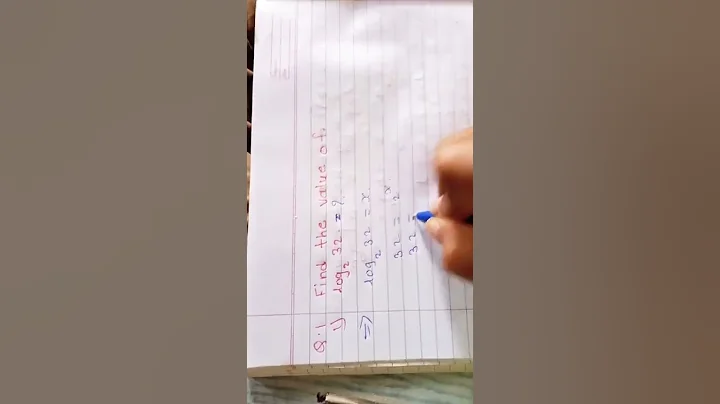 Q.1 Find the value of.
1) log₂ 32 = ?
⇒ log₂ 32 = x.
32 = 2ˣ.
32 =